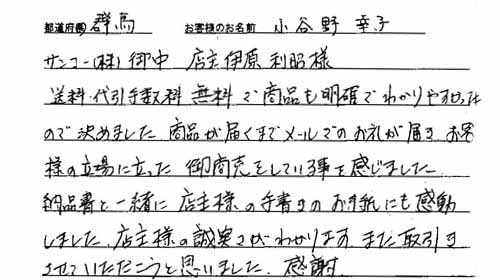 都道府県 群馬 お客様のお名前 小谷野 幸子
サンコー(株)御中 店主 伊原 利昭様
送料・代引手数料 無料で商品も明確でわかりやすかった
ので決めました 商品が届くまでメールでのお礼が届き お客
様の立場に立った 御商売をしている事を感じました
納品書と一緒に 店主様の手書きのお手紙にも感動
しました、店主様の誠実さがわかります また取引き
させていただこうと思いました、感謝